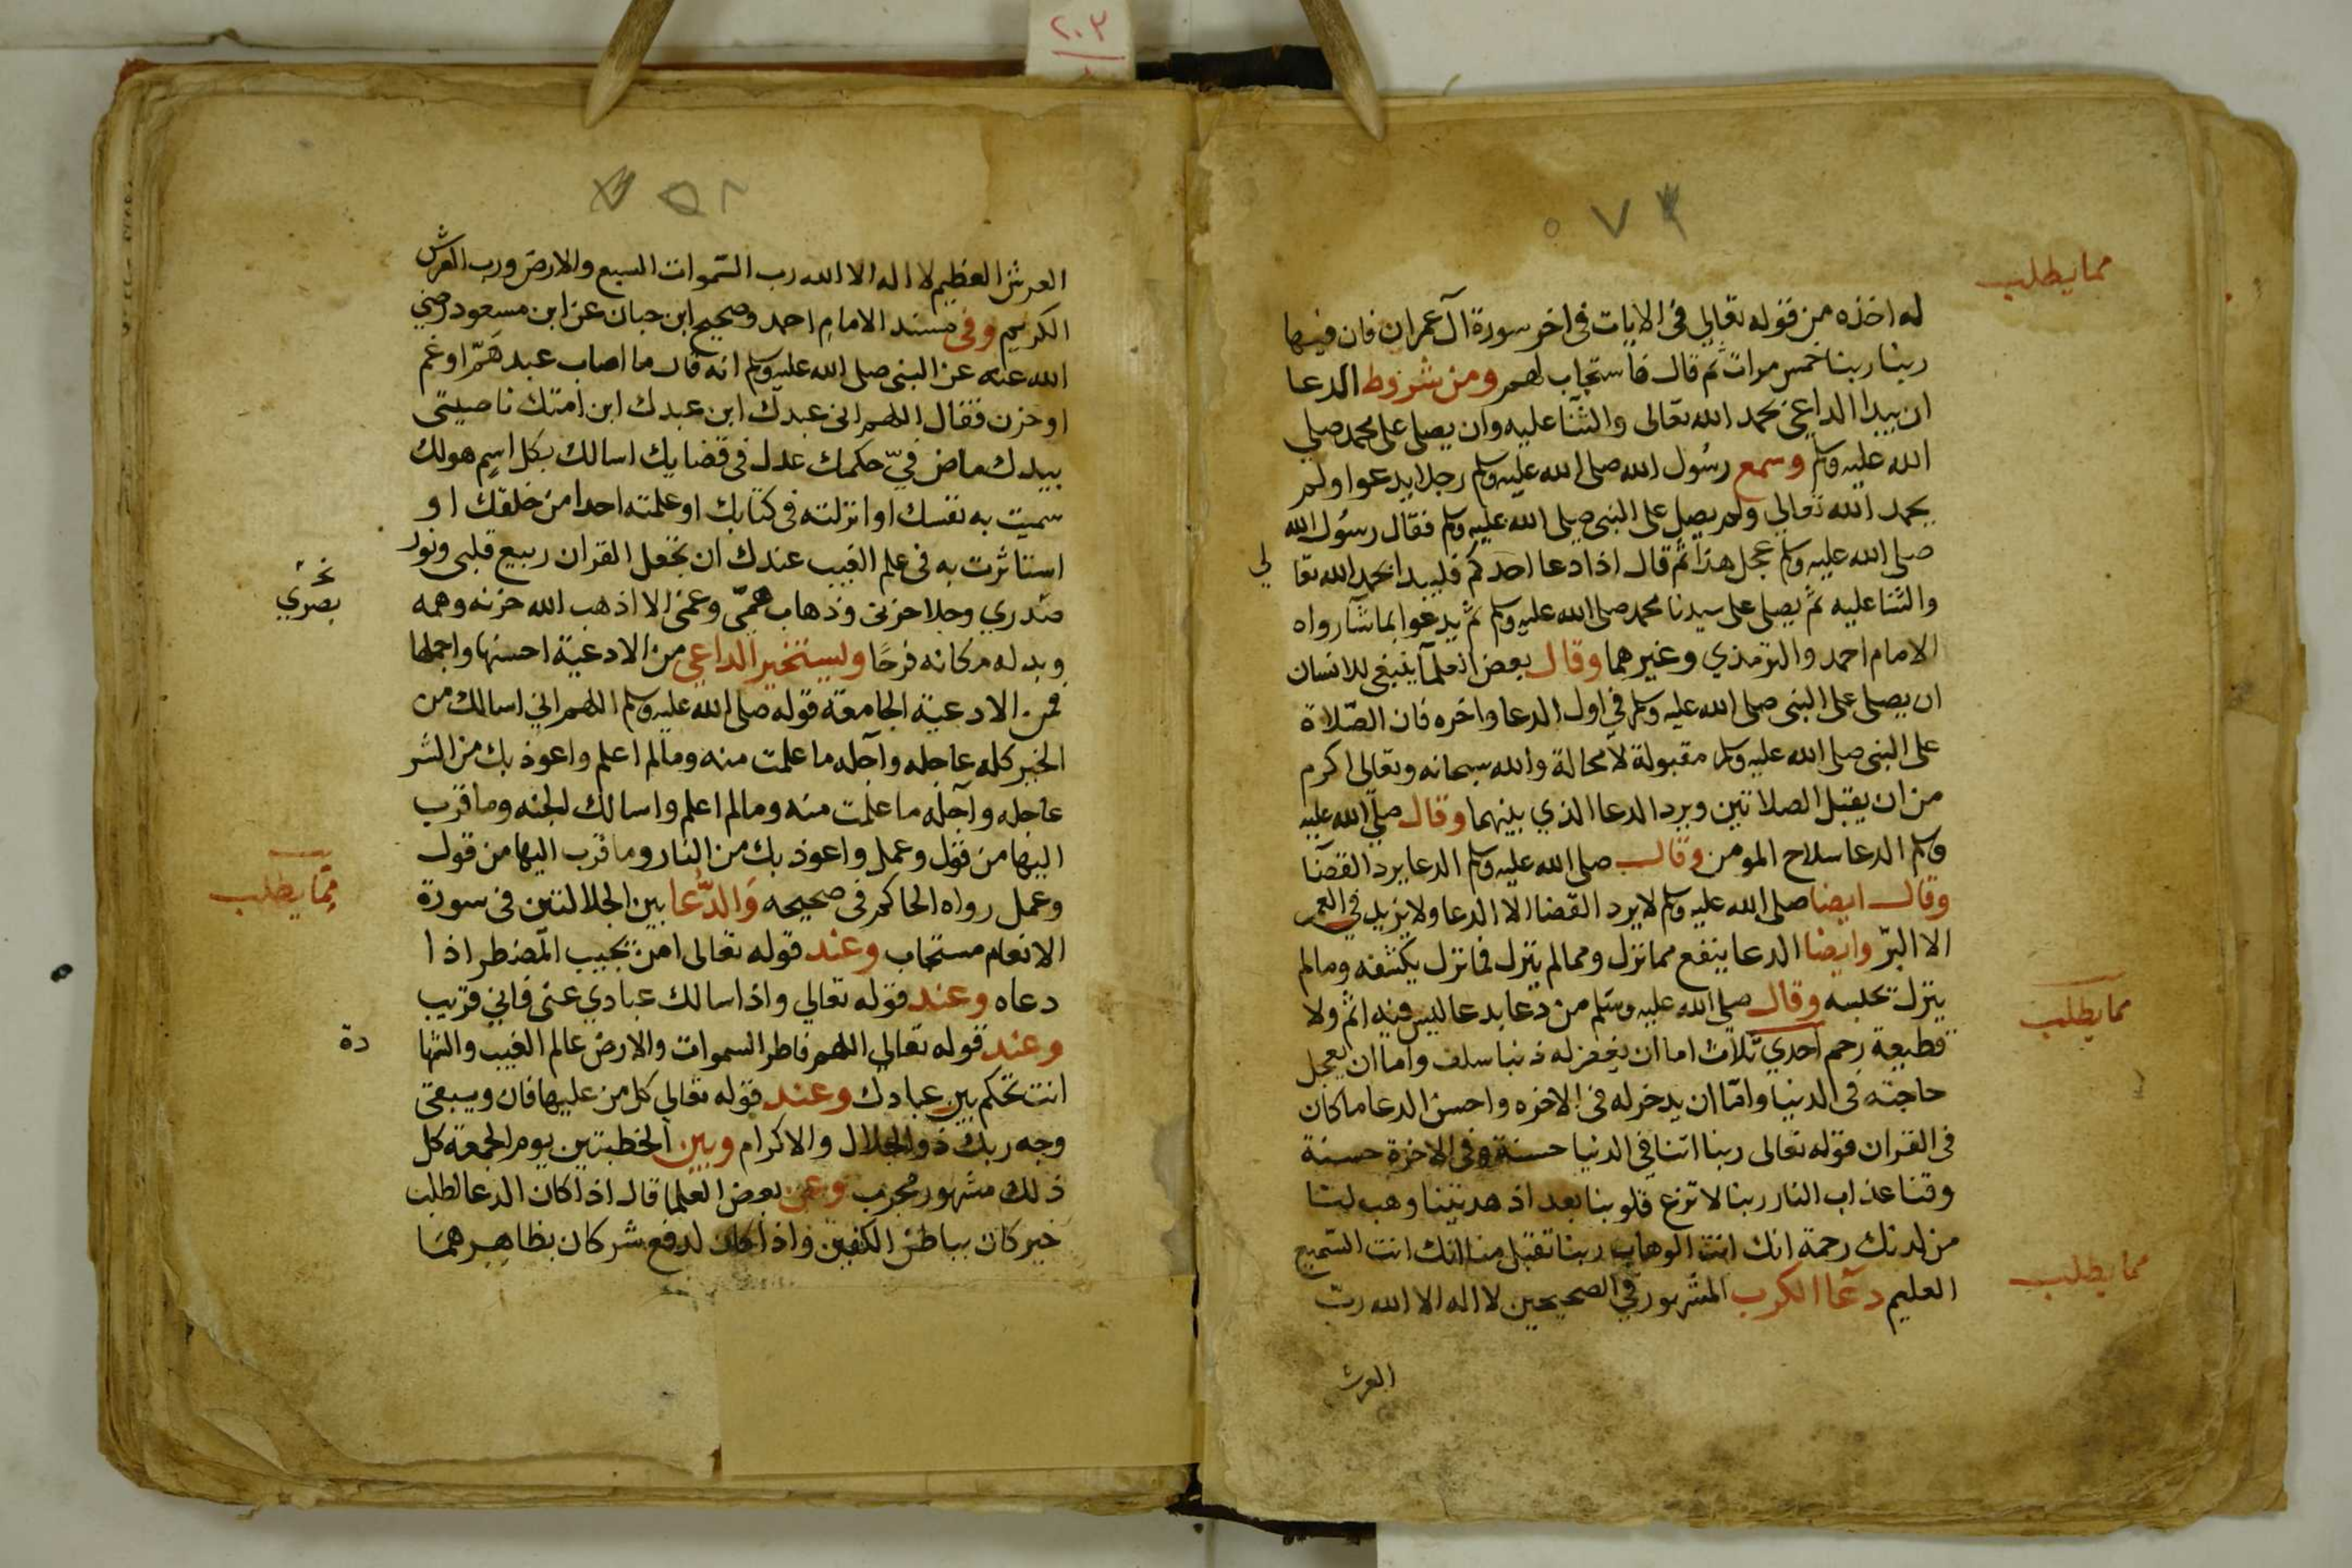 ٢٠٣
مما يطلب
له اخذه من قوله تعالي في الايات في اخر سورة آل عمران فان فيها
ربنا ربنا خمس مرات ثم قال فاستجاب لهم ومن شروط الدعا
ان يبدا الداعي بحمد الله تعالى والثنا عليه وان يصلي على محمد صلي
الله عليه وسلم وسمع رسول الله صلى الله عليه وسلم رجلا يدعوا ولم
يحمد الله تعالي ولم يصل على النبي صلى الله عليه وسلم فقال رسول الله
صلى الله عليه وسلم عجل هذا ثم قال اذا دعا احدكم فليبدا بحمد الله تعا
لي
والثنا عليه ثم يصلى على سيدنا محمد صلى الله عليه وسلم ثم يدعوا بما شآ رواه
الامام احمد والترمذي وغيرهما وقال بعض العلمآ ينبغي للانسان
ان يصلى على النبي صلى الله عليه وسلم في اول الدعا واخره فان الصّلاة
على النبي صلى الله عليه وسلم مقبولة لا محالة والله سبحانه وتعالى اكرم
من ان يقبل الصلاتين ويرد الدعا الذي بينهما وقال صلى الله عليه
وسلم الدعا سلاح المومن وقال صلى الله عليه وسلم الدعا يرد القضآ
وقال ايضا صلى الله عليه وسلم لا يرد القضا الا الدعا ولا يزيد في العمر
الا البرّ وايضا الدعا ينفع مما نزل ومما لم ينزل فما نزل يكشفه وما لم
ينزل يحبسه وقال صلى الله عليه وسلم من دعا بدعا ليس فيه اثم ولا
مما يطلب
قطيعة رحم احدي ثلاث اما ان يغفر له ذنبا سلف واما ان يعجل
حاجته في الدنيا وامّا ان يدخر له في الاخره واحسن الدعا ما كان
في القران قوله تعالى ربنا اتنا في الدنيا حسنة وفي الاخرة حسنة
وقنا عذاب النار ربنا لا تزغ قلوبنا بعد اذ هديتنا وهب لنا
من لدنك رحمة انك انت الوهاب ربنا تقبل منا انك انت السّميع
مما يطلب
العليم دعآ الكرب المشهور في الصحيحين لا اله الا الله ربّ
العرش
العرش العظيم لا اله الا الله رب السّموات السبع والارض ورب العرش
الكريم وفى مسند الامام احمد وصحيح ابن حبان عن ابن مسعود رضي
الله عنه عن النبي صلى الله عليه وسلم انه قال ما اصاب عبد همّ او غم
او حزن فقال اللهم اني عبدك ابن عبدك ابن امتك ناصيتي
بيدك ماض فيّ حكمك عدل في قضايك اسالك بكل اسم هو لك
سميت به نفسك او انزلته في كتابك او علمته احدا من خلقك او
استاثرت به في علم الغيب عندك ان تجعل القران ربيع قلبي ونور
بصري
صدري وجلا حزني وذهاب همّي وغمي الا اذهب الله حزنه وهمه
وبدله مكانه فرحًا وليستخير الداعي من الادعية احسنها واجملها
فمن الادعية الجامعة قوله صلى الله عليه وسلم اللهم اني اسالك من
الخير كله عاجله وآجله ما علمت منه وما لم اعلم واعوذ بك من الشر
عاجله وآجله ما علمت منه وما لم اعلم واسالك الجنه وما قرب
اليها من قول وعمل واعوذ بك من النار وما قرب اليها من قول
وعمل رواه الحاكم في صحيحه وَالدُّعا بين الجلالتين في سورة
مِمّا يطلب
الانعام مستجاب وعند قوله تعالى امن يجيب المضطر اذا
دعاه وعند قوله تعالي واذا سالك عبادي عني فاني قريب
وعند قوله تعالي اللهم فاطر السموات والارض عالم الغيب والشها
دة
انت تحكم بين عبادك وعند قوله تعالي كل من عليها فان ويبقى
وجه ربك ذو الجلال والاكرام وبين الخطبتين يوم الجمعة كل
ذلك مشهور مجرب وعن بعض العلما قال اذا كان الدعا لطلب
خير كان بباطن الكفين واذا كان لدفع شر كان بظاهرهما